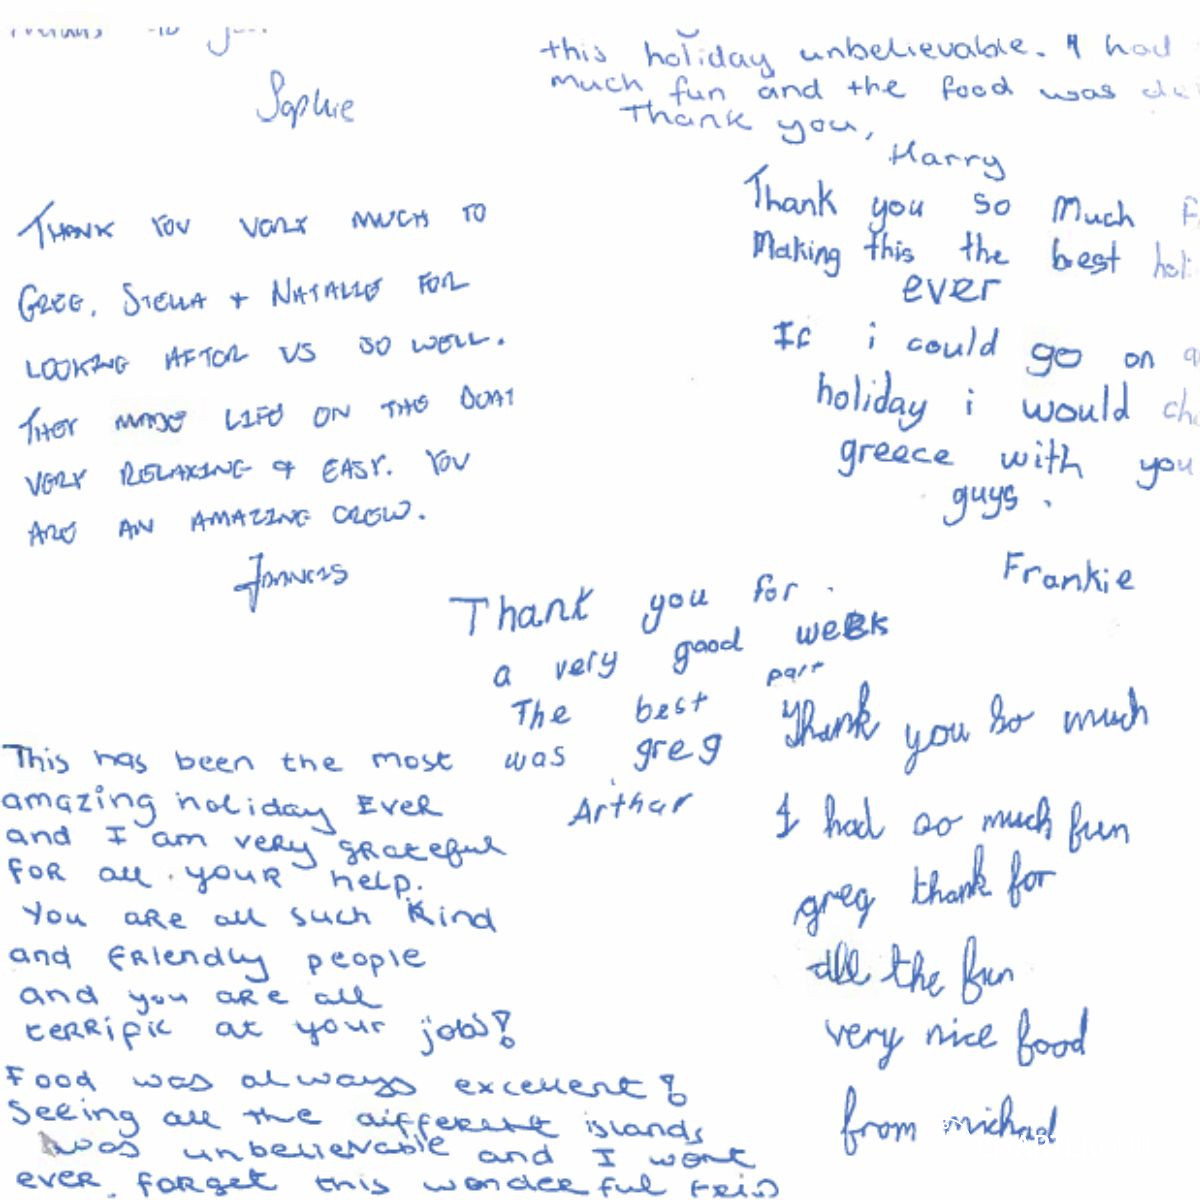 Sophie
this holiday unbelievable. I had
much fun and the food was
Thank you,
Harry
THANK YOU VERY MUCH TO
GREG, STELLA + NATALIE FOR
LOOKING AFTER US SO WELL.
THEY MADE LIFE ON THE BOAT
VERY RELAXING & EASY. YOU
ARE AN AMAZING CREW.
Frances
Thank you so Much
Making this the best
ever
If i could go on
holiday i would
greece with you
guys.
Frankie
Thank you for
a very good week
The best part
was greg
Arthur
This has been the most
amazing holiday Ever
and I am very grateful
for all your help.
You are all such kind
and friendly people
and you are all
terrific at your jobs!
Food was always excellent!
Seeing all the different islands
was unbelievable and I wont
ever forget this wonderful
Thank you so much
I had so much fun
greg thank for
all the fun
very nice food
from michael